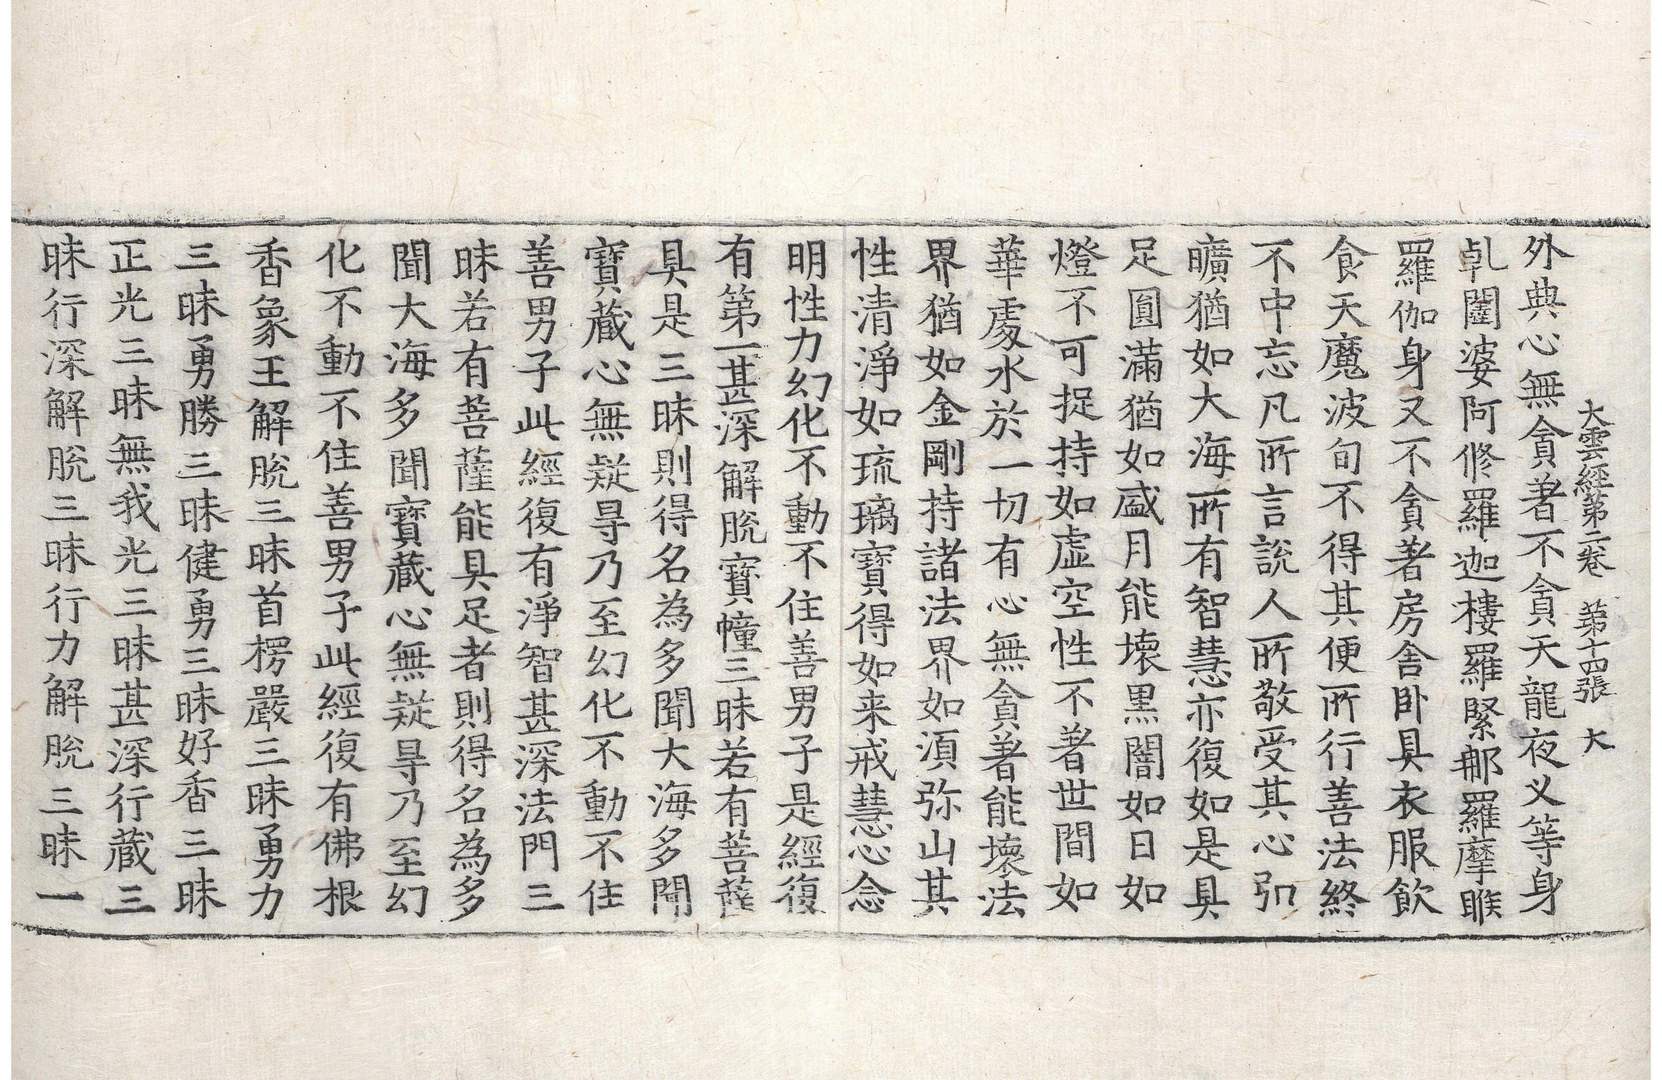 大雲經第二卷 第十四張 大
外典心無貪著不貪天龍夜义等身
乹闥婆阿修羅迦樓羅緊那羅摩睺
羅伽身又不貪著房舍卧具衣服飲
食天魔波旬不得其便所行善法終
不中忘凡所言說人所敬受其心弘
曠猶如大海所有智慧亦復如是具
足圓滿猶如盛月能壞黑闇如日如
燈不可捉持如虛空性不著世間如
華處水於一切有心無貪著能壞法
界猶如金剛持諸法界如湏弥山其
性清淨如琉璃寶得如来戒慧心念
明性力幻化不動不住善男子是經復
有第一甚深解脫寶幢三昧若有菩薩
具是三昧則得名為多聞大海多聞
寶藏心無疑㝵乃至幻化不動不住
善男子此經復有淨智甚深法門三
昧若有菩薩能具足者則得名為多
聞大海多聞寶藏心無疑㝵乃至幻
化不動不住善男子此經復有佛根
香象王解脫三昧首楞嚴三昧勇力
三昧勇勝三昧健勇三昧好香三昧
正光三昧無我光三昧甚深行藏三
昧行深解脫三昧行力解脫三昧一